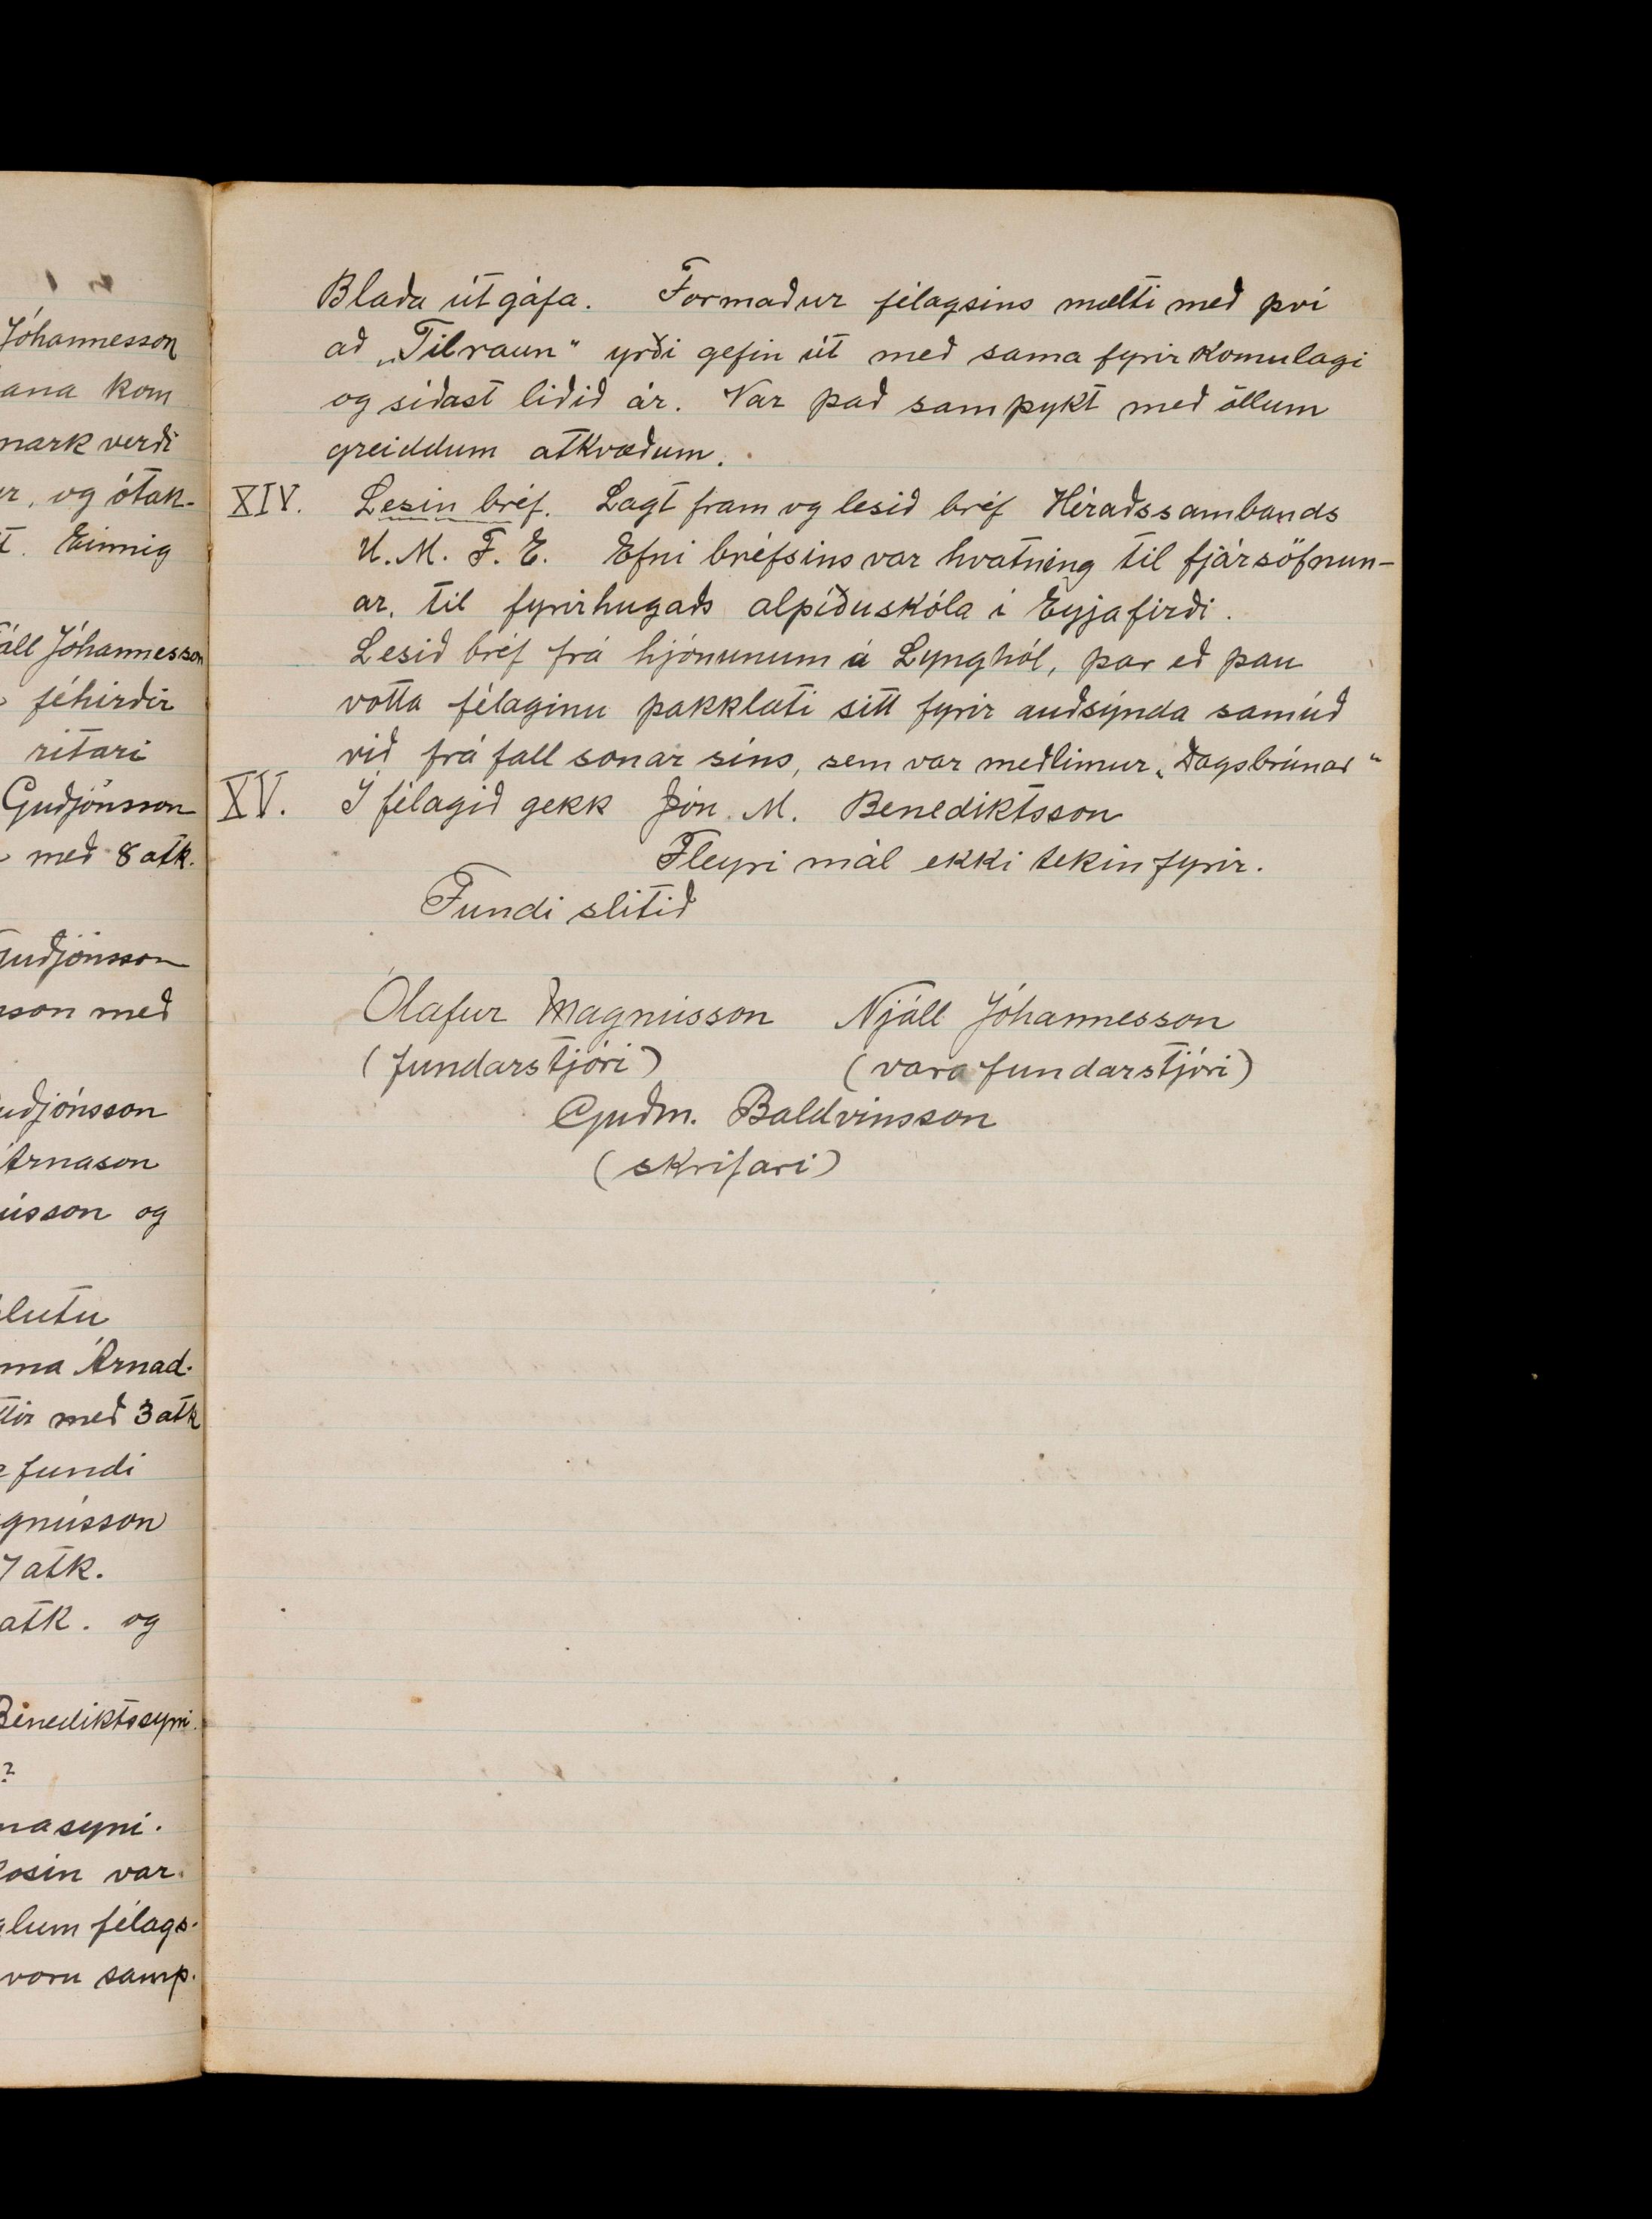 Jóhannesson
ana kom
mark verði
r, og ótak-
t. Einnig
áll Jóhannesson
féhirðir
ritari
Guðjónsson
með 8 atk.
Guðjónsson
sson með
uðjónsson
Árnason
ússon og
hlutu
ma Árnad.
ttir með 3 atk
fundi
gnússon
7 atk.
atk. og
Benediktssyni.
?
nasyni.
kosin var
glum félags-
voru samþ.
Blaða útgáfa. Formaður félagsins mælti með því
að „Tilraun“ yrði gefin út með sama fyrirkomulagi
og síðast liðið ár. Var það samþykt með öllum
greiddum atkvæðum.
XIV. Lesin bréf. Lagt fram og lesið bréf Héraðssambands
U. M. F. E. Efni bréfsins var hvatning til fjársöfnun-
ar, til fyrirhugaðs alþíðuskóla í Eyjafirði.
Lesið bréf frá hjónunum á Lynghól, þar eð þau
votta félaginu þakklæti sitt fyrir auðsýnda samúð
við fráfall sonar síns, sem var meðlimur „Dagsbrúnar“
XV. Í félagið gekk Jón M. Benediktsson
Fleyri mál ekki tekin fyrir.
Fundi slitið
Ólafur Magnússon Njáll Jóhannesson
(fundarstjóri) (vara fundarstjóri)
Guðm. Baldvinsson
(skrifari)